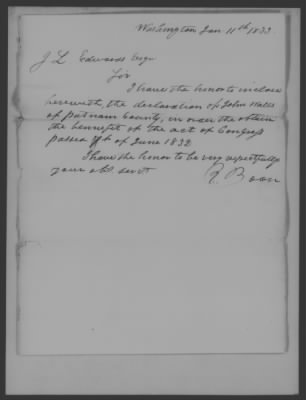 Washington Jan. 11th 1833.
J L Edwards Esqr
Sir
I have the honor to inclose
herewith, the declaration of John Walls
of Putnam County, in order the obtain
the bennefit of the act of Congress
passed 7th of June 1832
I have the honor to be very respectfully
your obt. servt
R. Boon